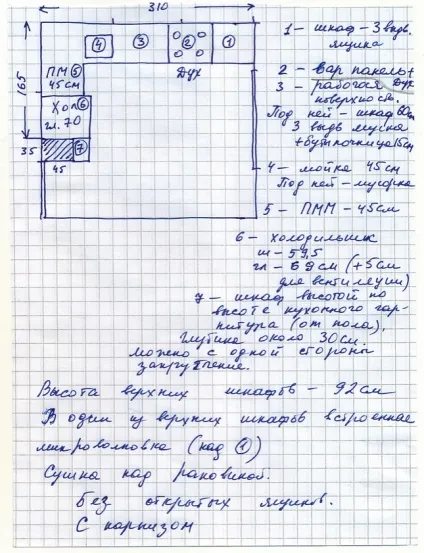 310
165
35
45
4
3
2
1
ПМ 5
45см
Хол 6
гл. 70
7
Дух
1 – шкаф – 3 выдв.
ящика
2 – вар панель +
Дух
3 – рабочая
поверхност.
Под ней – шкаф 60см
3 выдв ящика
+ бутылочница 15см
4 – мойка 45см
Под ней – мусорка
5 – ПММ – 45см
6 – холодильник
ш – 59,5
гл – 69см (+5см
для вентиляции)
7 – шкаф высотой по
высоте кухонного гар-
нитура (от пола).
Глубина около 30см.
можно с одной стороны
закругление.
Высота верхних шкафов – 92см
В один из верхних шкафов встроенная
микроволновка (над 1)
Сушка над раковиной.
Без открытых ящиков.
С карнизом